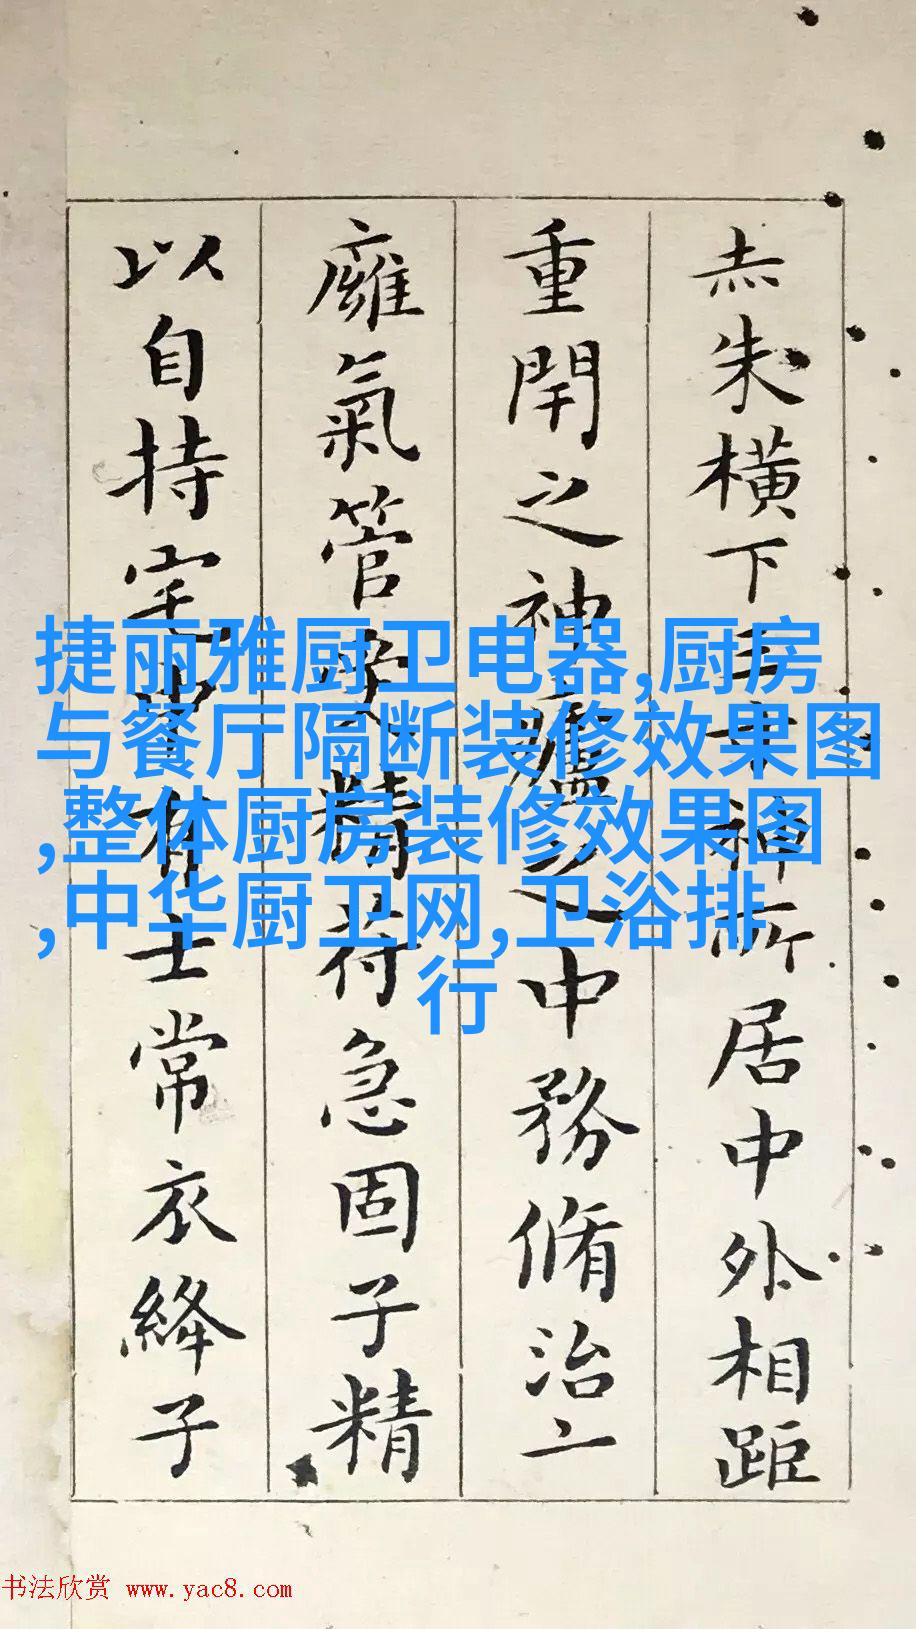 捷丽雅厨卫电器,厨房
与餐厅隔断装修效果图
,整体厨房装修效果图
,中华厨卫网,卫浴排
行
赤朱橫下三寸神所居中外相距
重閇之神廬之中務脩治
氣管受精苻急固子精
以自持宅中有士常衣絳子
书法欣赏 www.yac8.com